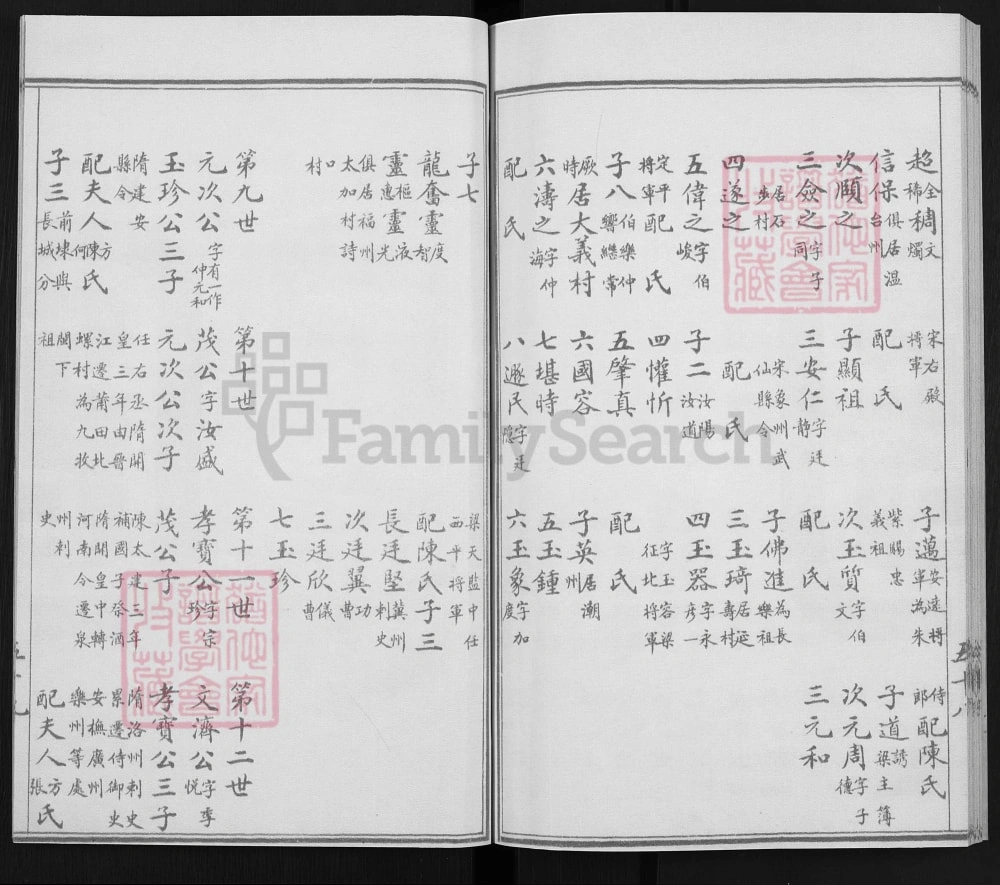 超全稀稠文燭
信保俱居溫台州
次顒之
三僉之字子同
居石步村
四遂之
五偉之字伯峻
定平將軍配氏
子八伯樂仲響繼常
厥時居大義村
六濤之字仲海
配氏
宋右殿將軍
配氏
子顯祖
三安仁字廷靜
宋象州武仙縣令
配氏
子二汝陽汝道
四懽忻
五肇真
六國容
七堪時
八遯民字廷隱
子邁安遠將軍為朱
紫賜忠義祖
次玉質字伯文
配氏
子佛進為長樂祖
三玉琦居延壽村
四玉器字永彥
字玉容梁征北將軍
配氏
子英居潮州
五玉鍾
六玉象字加度
侍郎配陳氏
子道誘梁主簿
次元周字子德
三元和
五十八
子七
龍奮靈度智
靈樞惠靈液光
俱居福州太加村詩
口村
第九世
元次公字有一作仲元和
玉珍公三子
隋建安縣令
配夫人方何陳氏
子三前埭興長城分
第十世
茂公字汝盛
元次公次子
任右丞隋開
皇三年由晉
江遷莆田北
螺村為九牧
閣下祖
梁天監中任西平將軍
配陳氏子三
長廷堅冀州刺史
次廷翼功曹
三廷欣儀曹
七玉珍
第十一世
孝寶公字宗珍
茂公子
陳太建三年
補國子祭酒
隋開皇中轉
河南令遷泉
州刺史
第十二世
文濟公字季悅
孝寶公三子
隋洛州刺史
累遷侍御史
安撫廣州
樂州等處
配夫人方張氏
五十九
FamilySearch